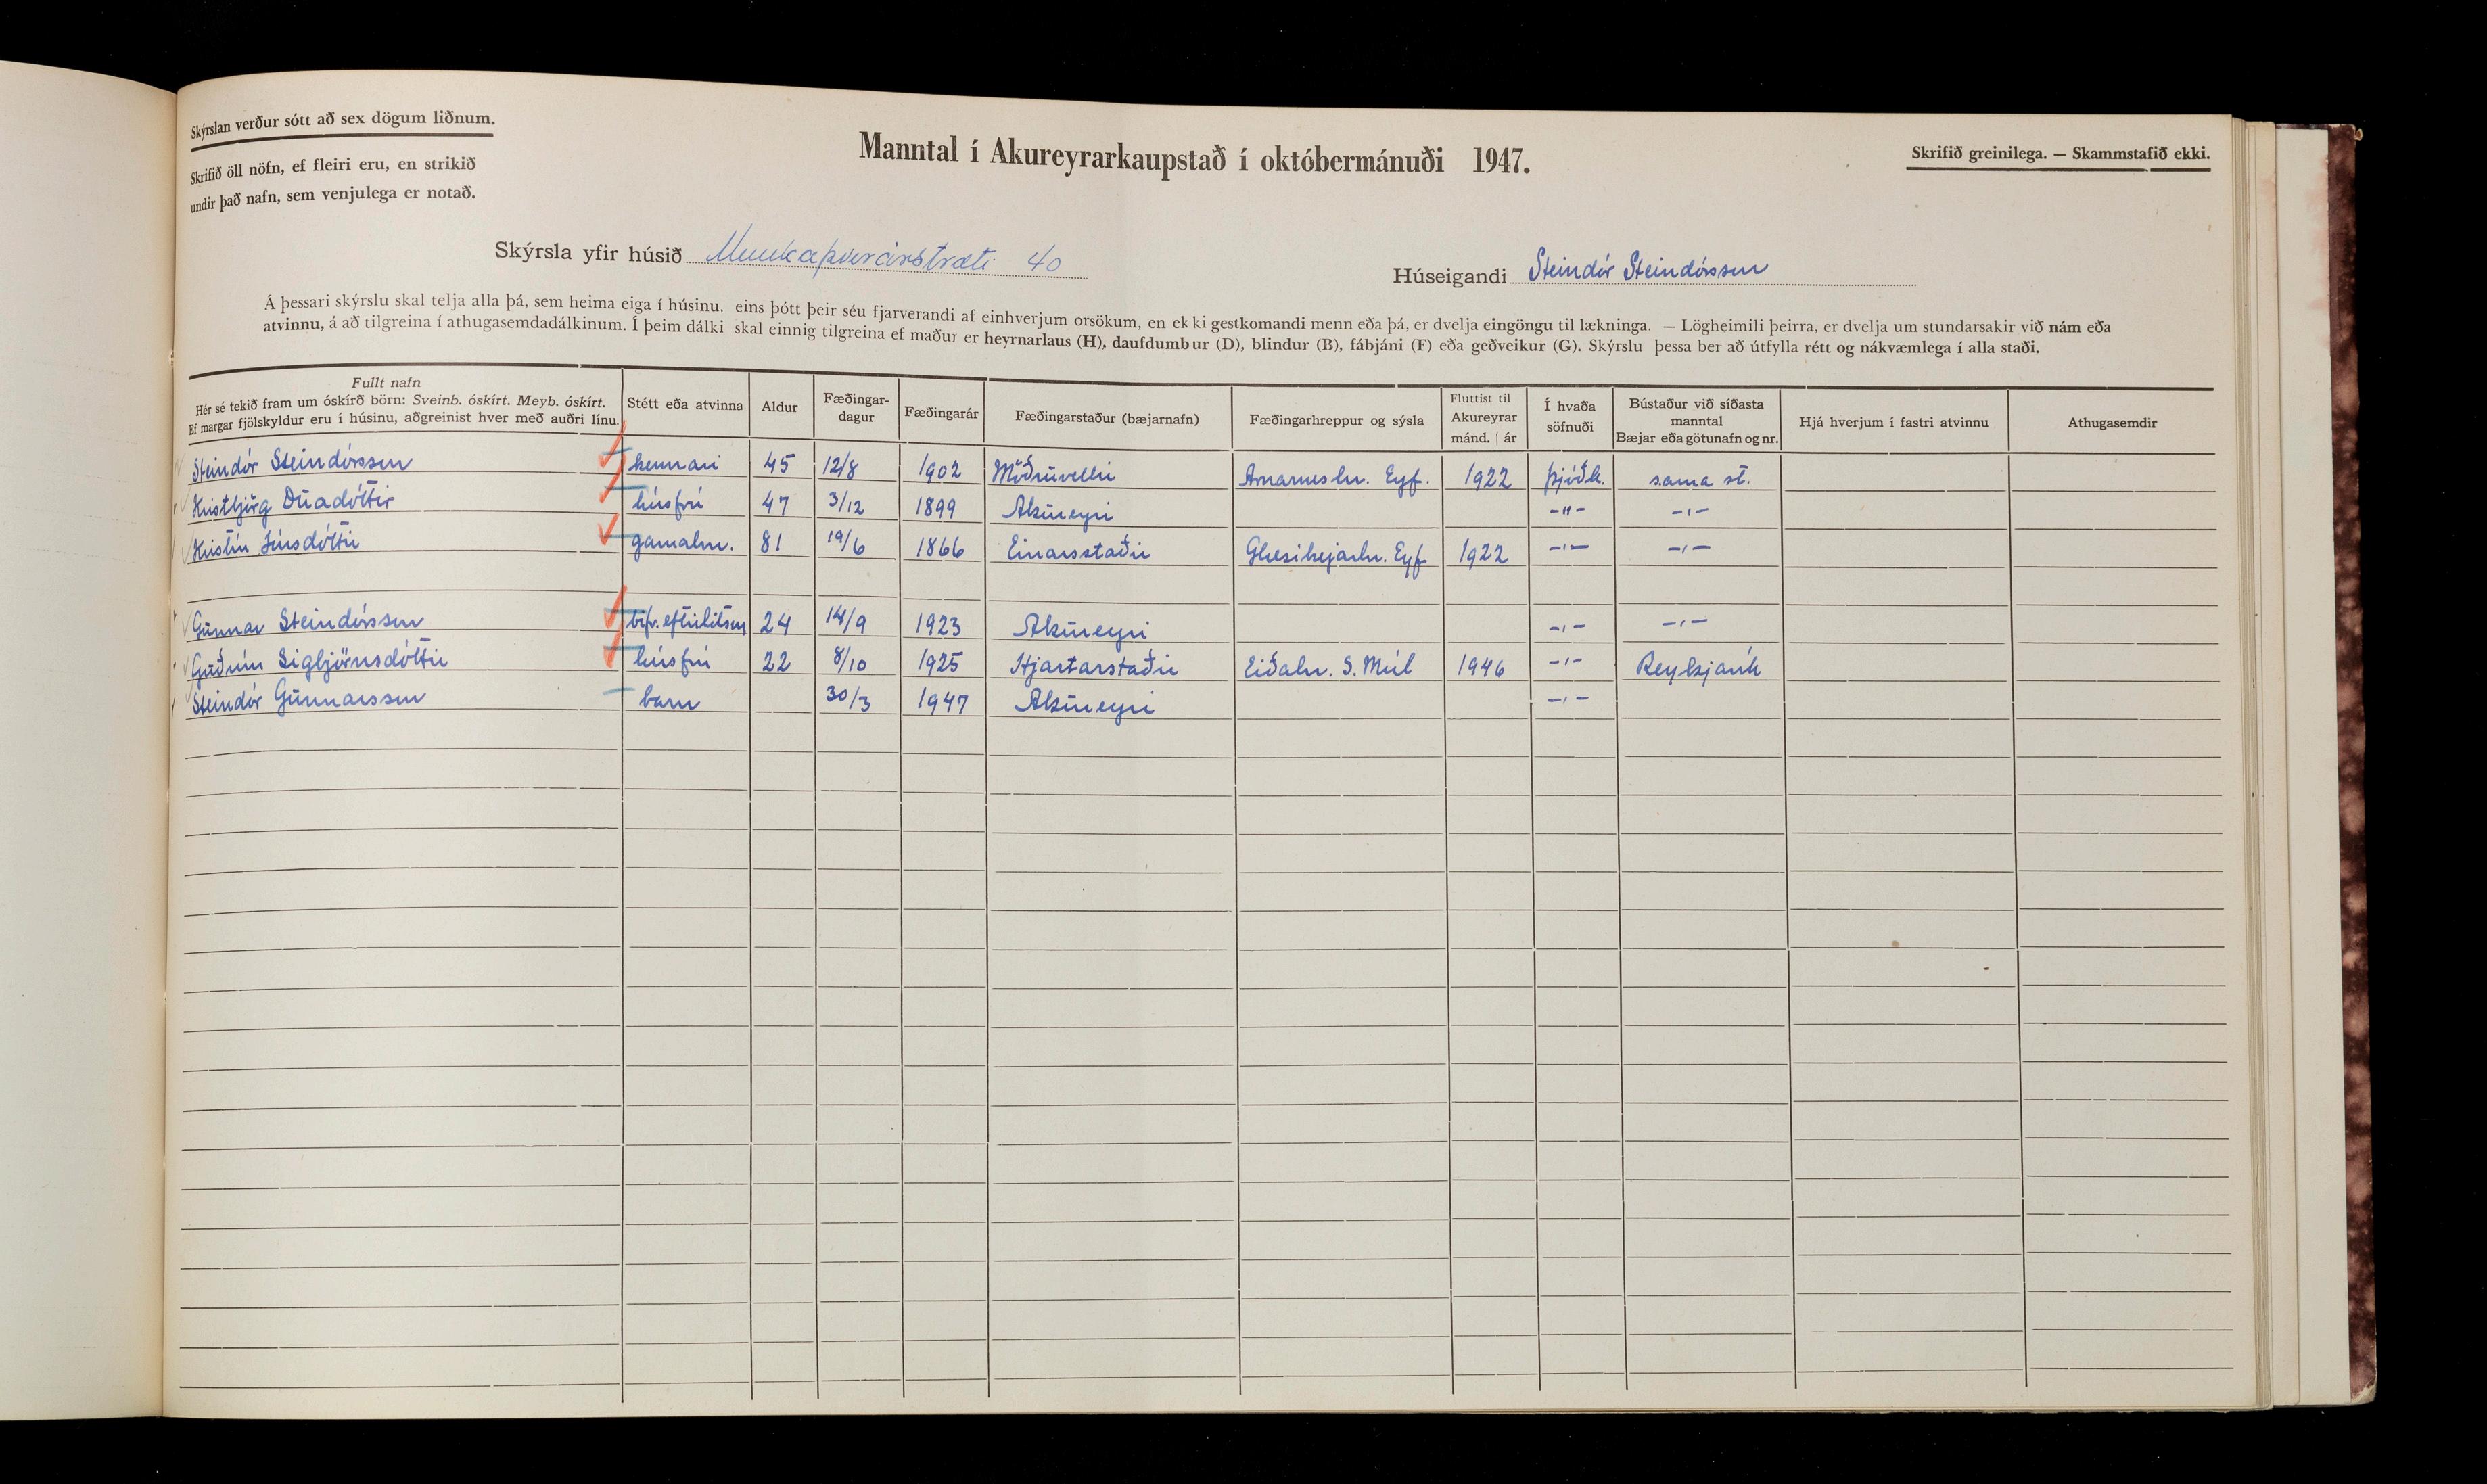 Skýrslan verður sótt að sex dögum liðnum.
Skrifið öll nöfn, ef fleiri eru, en strikið
undir það nafn, sem venjulega er notað.
Manntal í Akureyrarkaupstað í októbermánuði 1947.
Skrifið greinilega. — Skammstafið ekki.
Skýrsla yfir húsið Munkaþverárstræti 40
Húseigandi Steindór Steindórsson
Á þessari skýrslu skal telja alla þá, sem heima eiga í húsinu, eins þótt þeir séu fjarverandi af einhverjum orsökum, en ekki gestkomandi menn eða þá, er dvelja eingöngu til lækninga. — Lögheimili þeirra, er dvelja um stundarsakir við nám eða
atvinnu, á að tilgreina í athugasemdadálkinum. Í þeim dálki skal einnig tilgreina ef maður er heyrnarlaus (H), daufdumbur (D), blindur (B), fábjáni (F) eða geðveikur (G). Skýrslu þessa ber að útfylla rétt og nákvæmlega í alla staði.
Fullt nafn
Hér sé tekið fram um óskírð börn: Sveinb. óskírt. Meyb. óskírt.
Ef margar fjölskyldur eru í húsinu, aðgreinist hver með auðri línu.
Stétt eða atvinna
Aldur
Fæðingar-
dagur
Fæðingarár
Fæðingarstaður (bæjarnafn)
Fæðingarhreppur og sýsla
Fluttist til
Akureyrar
mánd. | ár
Í hvaða
söfnuði
Bústaður við síðasta
manntal
Bæjar eða götunafn og nr.
Hjá hverjum í fastri atvinnu
Athugasemdir
Steindór Steindórsson kennari 45 12/8 1902 Möðruvellir Arnarneshr. Eyf. 1922 þjóðk. sama st.
Kristbjörg Dúadóttir húsfrú 47 3/12 1899 Akureyri -"- -"-
Kristín Jónsdóttir gamalm. 81 19/6 1866 Einarsstaðir Glæsibæjarhr. Eyf 1922 -"- -"-
Gunnar Steindórsson bifr.eftirlitsm 24 14/9 1923 Akureyri -"- -"-
Guðrún Sigbjörnsdóttir húsfrú 22 8/10 1925 Hjartarstaðir Eiðahr. S. Múl 1946 -"- Reykjavík
Steindór Gunnarsson barn 30/3 1947 Akureyri -"-